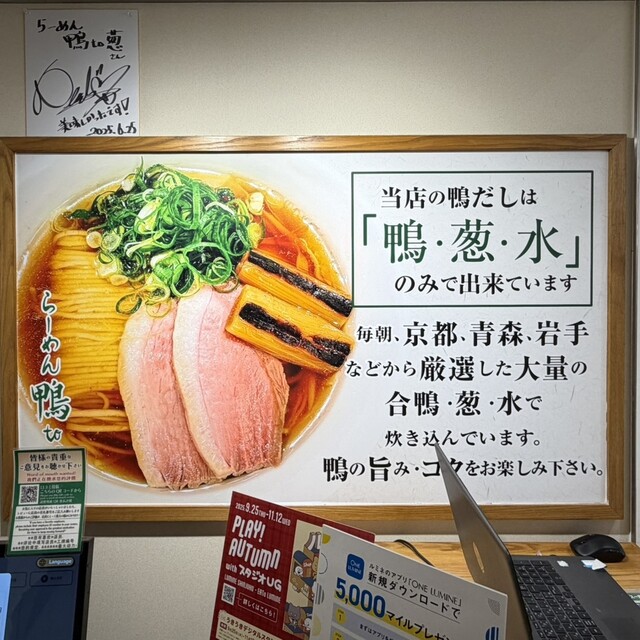 らーめん
鴨to葱
さん
美味しかったです!
2025.6.25
当店の鴨だしは
「鴨・葱・水」
のみで出来ています
毎朝、京都、青森、岩手
などから厳選した大量の
合鴨・葱・水で
炊き込んでいます。
鴨の旨み・コクをお楽しみ下さい。
らーめん 鴨to
皆様の貴重な
ご意見をお聴かせ下さい
Language
2025 9.25THU-11.12WED
PLAY!
AUTUMN
with スタジオUG
詳しくはこちら!
One
LUMINE
ルミネのアプリ「ONE LUMINE」
新規ダウンロードで
5,000マイルプレゼ